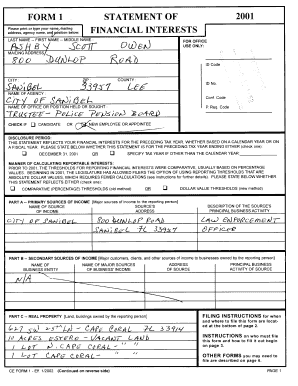 FORM 1
STATEMENT OF
FINANCIAL INTERESTS
2001
Please print or type your name, mailing address, agency name, and position below:
LAST NAME – FIRST NAME – MIDDLE NAME:
ASHBY SCOTT OWEN
MAILING ADDRESS:
800 DUNLOP ROAD
CITY: ZIP: COUNTY:
SANIBEL 33957 LEE
NAME OF AGENCY:
CITY OF SANIBEL
NAME OF OFFICE OR POSITION HELD OR SOUGHT:
TRUSTEE - POLICE PENSION BOARD
CHECK IF CANDIDATE OR NEW EMPLOYEE OR APPOINTEE
FOR OFFICE
USE ONLY:
ID Code
ID No.
Conf. Code
P. Req. Code
DISCLOSURE PERIOD:
THIS STATEMENT REFLECTS YOUR FINANCIAL INTERESTS FOR THE PRECEDING TAX YEAR, WHETHER BASED ON A CALENDAR YEAR OR ON
A FISCAL YEAR. PLEASE STATE BELOW WHETHER THIS STATEMENT IS FOR THE PRECEDING TAX YEAR ENDING EITHER (check one):
DECEMBER 31, 2001 OR SPECIFY TAX YEAR IF OTHER THAN THE CALENDAR YEAR:
MANNER OF CALCULATING REPORTABLE INTERESTS:
PRIOR TO 2001, THE THRESHOLDS FOR REPORTING FINANCIAL INTERESTS WERE COMPARATIVE, USUALLY BASED ON PERCENTAGE
VALUES. BEGINNING IN 2001, THE LEGISLATURE HAS ALLOWED FILERS THE OPTION OF USING REPORTING THRESHOLDS THAT ARE
ABSOLUTE DOLLAR VALUES, WHICH REQUIRES FEWER CALCULATIONS (see instructions for further details). PLEASE STATE BELOW WHETHER
THIS STATEMENT REFLECTS EITHER (check one):
COMPARATIVE (PERCENTAGE) THRESHOLDS (old method) OR DOLLAR VALUE THRESHOLDS (new method)
PART A -- PRIMARY SOURCES OF INCOME [Major sources of income to the reporting person]
NAME OF SOURCE OF INCOME
SOURCE'S ADDRESS
DESCRIPTION OF THE SOURCE'S PRINCIPAL BUSINESS ACTIVITY
CITY OF SANIBEL 800 DUNLOP ROAD LAW ENFORCEMENT
SANIBEL FL 33957 OFFICER
PART B -- SECONDARY SOURCES OF INCOME [Major customers, clients, and other sources of income to businesses owned by the reporting person]
NAME OF BUSINESS ENTITY
NAME OF MAJOR SOURCES OF BUSINESS' INCOME
ADDRESS OF SOURCE
PRINCIPAL BUSINESS ACTIVITY OF SOURCE
N/A
PART C -- REAL PROPERTY [Land, buildings owned by the reporting person]
CAPE CORAL FL 33914
10 ACRES ESTERO - VACANT LAND
1 LOT N. CAPE CORAL - " "
1 LOT CAPE CORAL - " "
FILING INSTRUCTIONS for when and where to file this form are located at the bottom of page 2.
INSTRUCTIONS on who must file this form and how to fill it out begin on page 3.
OTHER FORMS you may need to file are described on page 4.
CE FORM 1 - Eff. 1/2002 (Continued on reverse side) PAGE 1